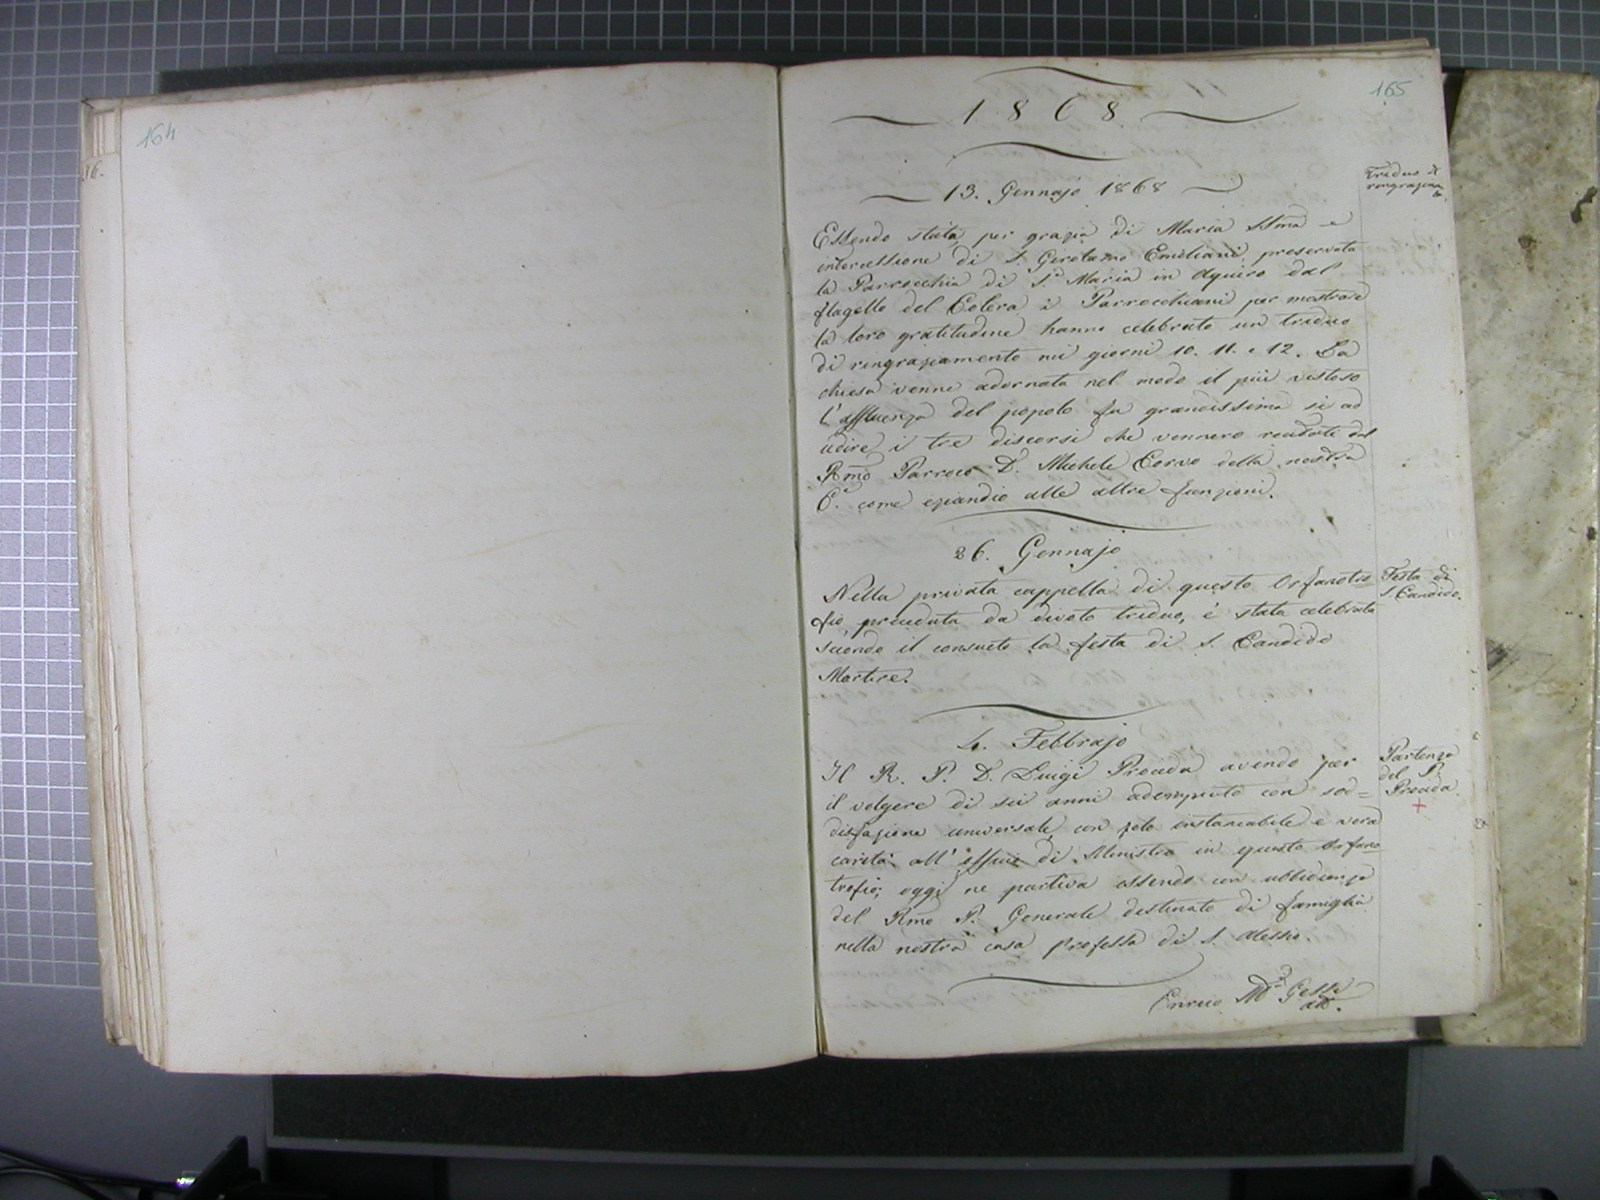 164
16.
165
1868
13. Gennajo 1868
Triduo di
ringraziam
to.
Essendo stata per grazia di Maria SSma e
intercessione di S. Girolamo Emiliani preservata
la Parrocchia di S.a Maria in Aquiro dal
flagello del Colera i Parrocchiani per mostrare
la loro gratitudine hanno celebrato un triduo
di ringraziamento nei giorni 10. 11. e 12. La
chiesa venne adornata nel modo il più vistoso
l'affluenza del popolo fu grandissima sì ad
udire i tre discorsi che vennero recitati dal
Rmo Parroco D. Michele Corvo della nostra
C. come eziandio alle altre funzioni.
26. Gennajo
Nella privata cappella di questo Orfanotro
fio preceduta da divoto triduo, è stata celebrata
secondo il consueto la festa di S. Candido
Martire.
Festa di
S. Candido.
4. Febbrajo
Il R. P. D. Luigi Procida avendo per
il volgere di sei anni adempiuto con sod=
disfazione universale, con zelo instancabile e vera
carità all'officio di Ministro in questo Orfano
trofio; oggi ne partiva essendo con ubbidienza
del Rmo P. Generale destinato di famiglia
nella nostra casa professa di S. Alessio.
Partenza
del P.
Procida.
+
Enrico Ma Gessi
att.